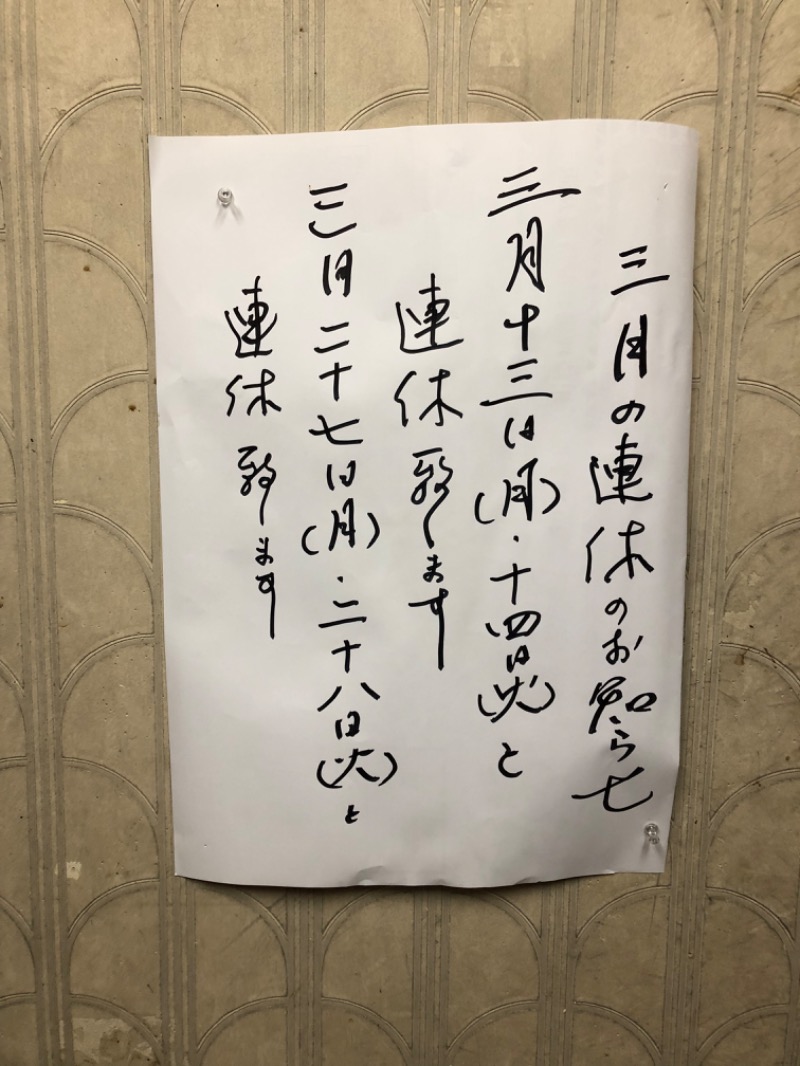 三月の連休のお知らせ
三月十三日(月)・十四日(火)と
連休致します
三月二十七日(月)・二十八日(火)と
連休致します